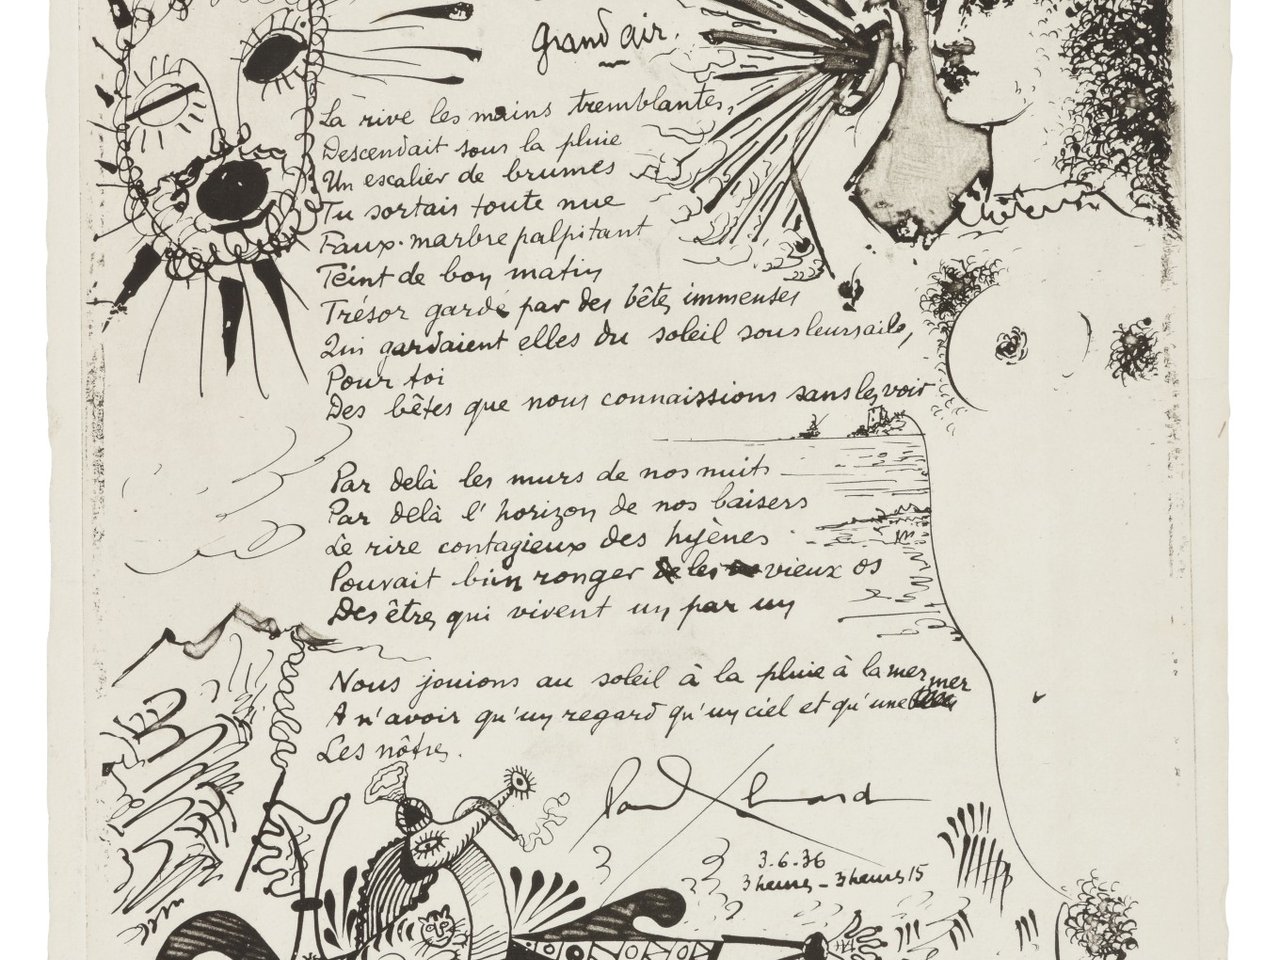 Grand air.
La rive les mains tremblantes,
Descendait sous la pluie
Un escalier de brumes
Tu sortais toute nue
Faux-marbre palpitant
Teint de bon matin
Trésor gardé par des bêtes immenses
Qui gardaient elles du soleil sous leurs ailes,
Pour toi
Des bêtes que nous connaissions sans les voir
Par delà les murs de nos nuits
Par delà l'horizon de nos baisers
Le rire contagieux des hyènes
Pouvait bien ronger les vieux os
Des êtres qui vivent un par un
Nous jouions au soleil à la pluie à la mer
A n'avoir qu'un regard qu'un ciel et qu'une mer
Les nôtres.
Paul Eluard
3.6.36
3 heures - 3 heures 15